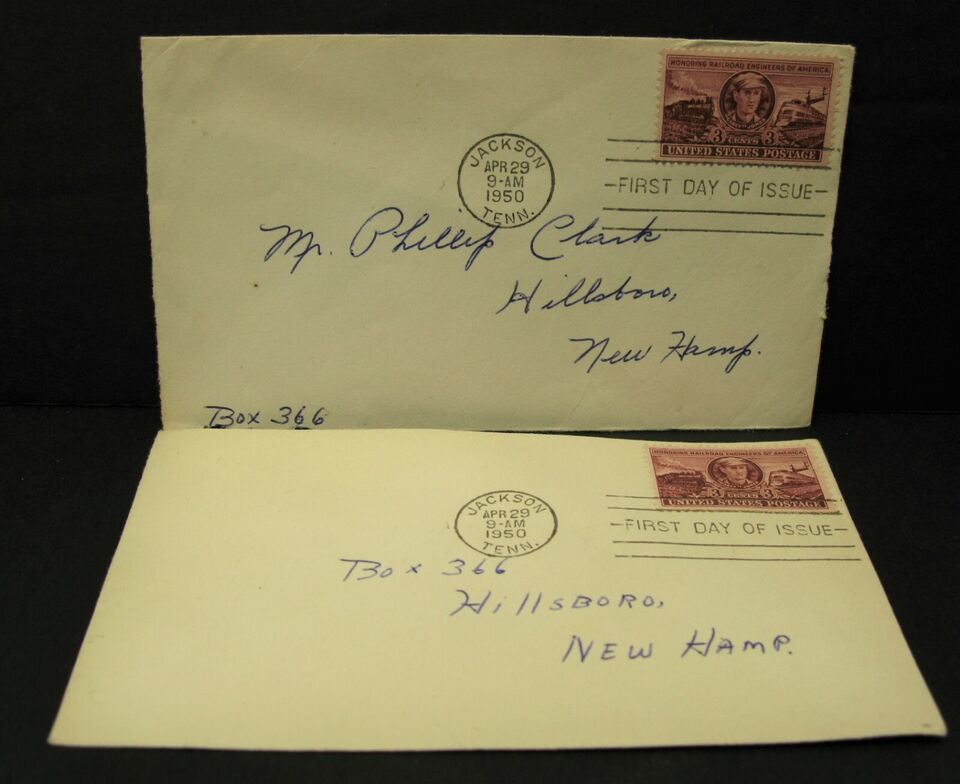 HONORING RAILROAD ENGINEERS OF AMERICA
3 CENTS 3
UNITED STATES POSTAGE
JACKSON
APR 29
9-AM
1950
TENN.
FIRST DAY OF ISSUE
Mr. Phillip Clark
Hillsboro,
New Hamp.
Box 366
HONORING RAILROAD ENGINEERS OF AMERICA
3 CENTS 3
UNITED STATES POSTAGE
JACKSON
APR 29
9-AM
1950
TENN.
FIRST DAY OF ISSUE
Box 366
HillsBORO,
NEW HAMP.